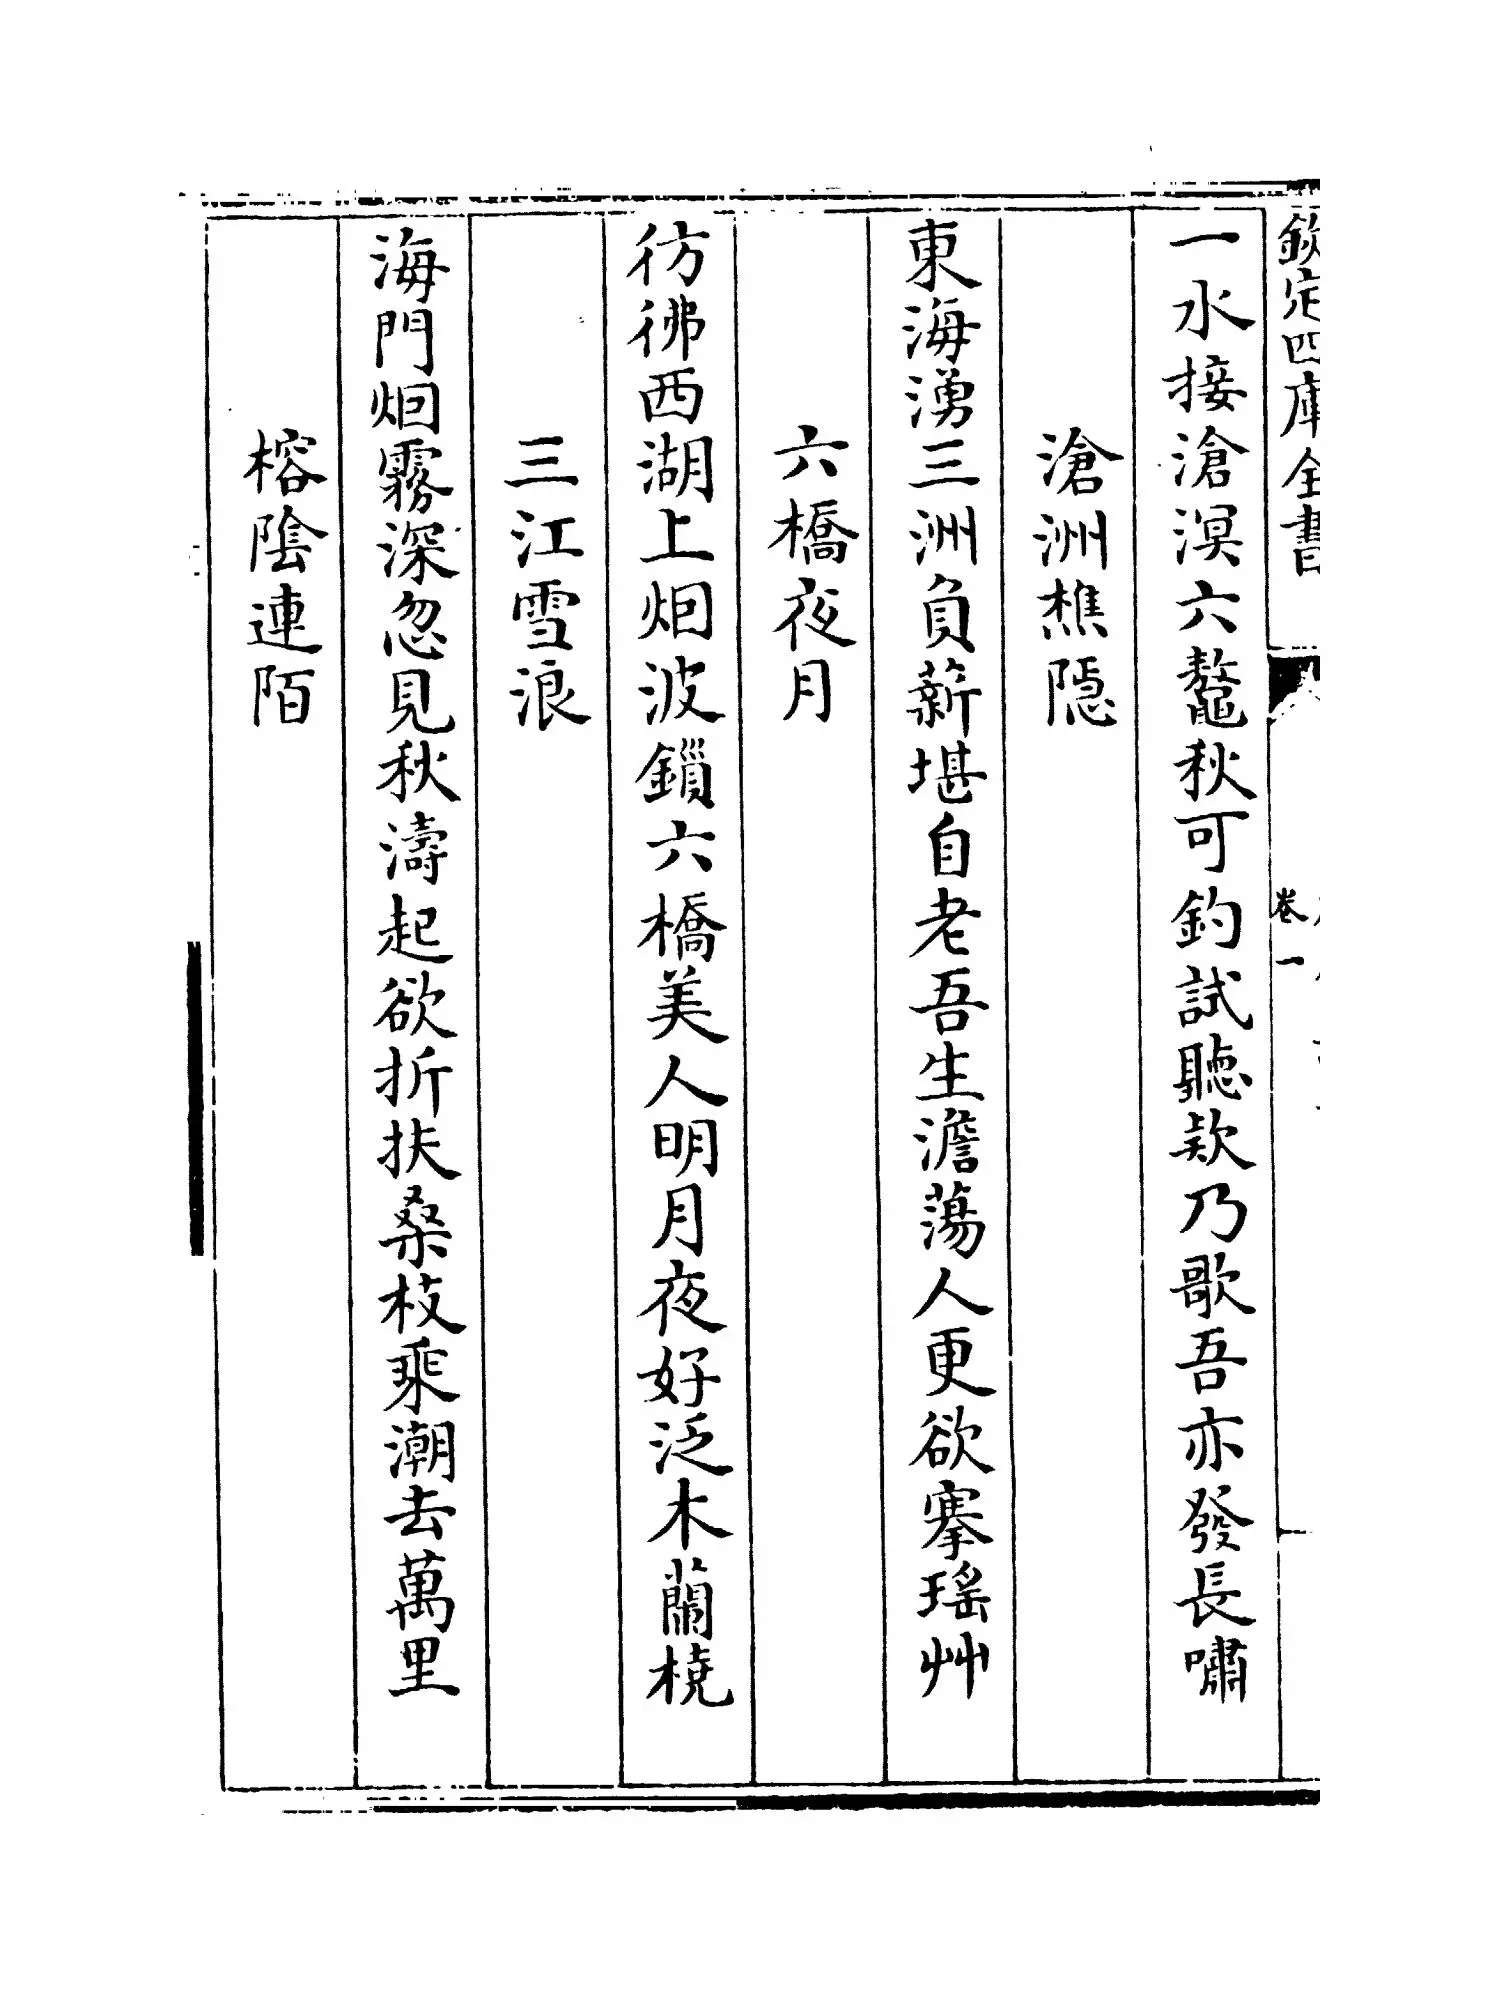 欽定四庫全書
卷一
一水接滄溟六鼇秋可釣試聽欵乃歌吾亦發長嘯
滄洲樵隠
東海湧三洲負薪堪自老吾生澹蕩人更欲搴瑶艸
六橋夜月
彷彿西湖上烟波鎻六橋美人明月夜好泛木蘭橈
三江雪浪
海門烟霧深忽見秋濤起欲折扶桑枝乘潮去萬里
榕陰連陌